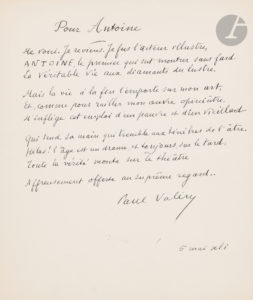 Pour Antoine
Me voici. Je reviens. Je fus l'acteur illustre,
ANTOINE, le premier qui sut montrer sans fard
La véritable vie aux diamants du lustre.
Mais la vie à la fin l'emporte sur mon art,
Et, comme pour railler mon œuvre opiniâtre,
M'inflige cet emploi d'un pauvre et d'un vieillard
Qui tend sa main qui tremble aux ténèbres de l'âtre.
Hélas! l'âge est un drame et toujours sur le tard
Toute la vérité monte sur le théâtre
Affreusement offerte au suprême regard..
Paul Valéry
5 mai